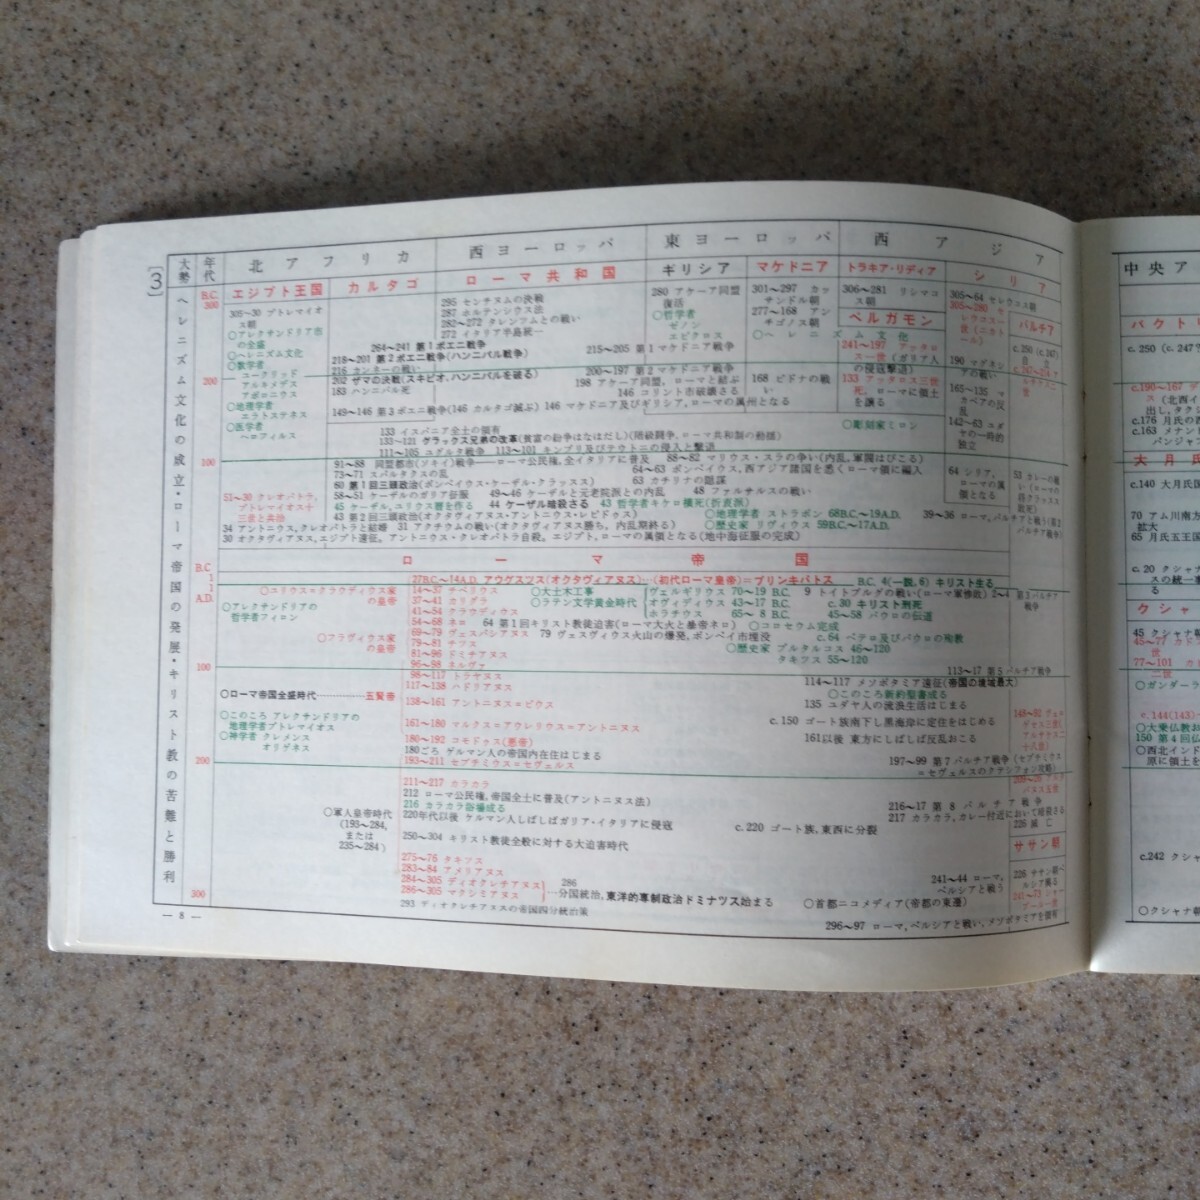 〔3〕
大勢
年代
北アフリカ
西ヨーロッパ
東ヨーロッパ
西アジア
ヘレニズム文化の成立・ローマ帝国の発展・キリスト教の苦難と勝利
B.C.
300
200
100
B.C
1
1
A.D.
100
200
300
エジプト王国
カルタゴ
ローマ共和国
ギリシア
マケドニア
トラキア・リディア
シリア
305～30 プトレマイオ
ス朝
○アレクサンドリア市
の全盛
○ヘレニズム文化
○数学者
ユークリッド
アルキメデス
アポロニウス
○地理学者
エラトステネス
○医学者
ヘロフィルス
295 センチヌムの決戦
287 ホルテンシウス法
282～272 タレンツムとの戦い
272 イタリア半島統一
264～241 第1ポエニ戦争
218～201 第2ポエニ戦争(ハンニバル戦争)
216 カンネーの戦い
202 ザマの決戦(スキピオ、ハンニバルを破る)
183 ハンニバル死
149～146 第3ポエニ戦争(146 カルタゴ滅ぶ) 146 マケドニア及びギリシア,ローマの属州となる
280 アケーア同盟
復活
○哲学者
ゼノン
エピクロス
○ヘレニズム文化
301～297 カッ
サンドル朝
277～168 アン
チゴノス朝
215～205 第1マケドニア戦争
200～197 第2マケドニア戦争
198 アケーア同盟, ローマと結ぶ
146 コリント市破壊さる
168 ピドナの戦
い
306～281 リシマコ
ス朝
ペルガモン
241～197 アッタロ
ス一世 (ガリア人
の侵寇撃退)
133 アッタロス三世
死, ローマに領土
を譲る
○彫刻家ミロン
305～64 セレウコス朝
305～280 セ
レウコス一
世(ニカト
ール)
190 マグネシ
アの戦い
165～135 マ
カベアの反
乱
142～63 ユダ
ヤの一時的
独立
64 シリア,
ローマの属
領となる
パルチア
c.250 (c.247)
53 カレーの戦
133 イスパニア全土の領有
133～121 グラックス兄弟の改革(貧富の紛争はなはだし)(階級闘争、ローマ共和制の動揺)
111～105 ユグルタ戦争 113～101 キンブリ及びテウトニの侵入と撃退
91～88 同盟都市(ソキイ)戦争――ローマ公民権, 全イタリアに普及 88～82 マリウス・スラの争い(内乱, 軍閥はびこる)
73～71 スパルタクスの乱 64～63 ポンペイウス, 西アジア諸国を悉くローマ領に編入
60 第1回三頭政治(ポンペイウス・ケーザル・クラッスス) 63 カチリナの隠謀
58～51 ケーザルのガリア征服 49～46 ケーザルと元老院派との内乱 48 ファルサルスの戦い
45 ケーザル, ユリウス暦を作る 44 ケーザル暗殺さる 43 哲学者キケロ横死(折衷派)
43 第2回三頭政治(オクタヴィアヌス・アントニウス・レピドゥス) ○地理学者 ストラボン 68B.C.～19A.D.
51～30 クレオパトラ,
プトレマイオス十
三世と共治
34 アントニウス, クレオパトラと結婚 31 アクチウムの戦い(オクタヴィアヌス勝ち, 内乱期終る) ○歴史家 リヴィウス 59B.C.～17A.D.
30 オクタヴィアヌス, エジプト遠征. アントニウス・クレオパトラ自殺. エジプト, ローマの属領となる(地中海征服の完成)
39～36 ローマ, パルチアと戦う(第2
パルチア戦争)
ローマ帝国
27B.C.～14A.D. アウグスツス(オクタヴィアヌス)…(初代ローマ皇帝)＝プリンキパトス B.C. 4(一説, 6) キリスト生る
○ユリウス＝クラウディウス家
の皇帝
○アレクサンドリアの
哲学者フィロン
○フラヴィウス家
の皇帝
14～37 チベリウス
37～41 カリグラ
41～54 クラウディウス
54～68 ネロ 64 第1回キリスト教徒迫害(ローマ大火と暴帝ネロ) ○コロセウム完成
69～79 ヴェスパシアヌス 79 ヴェスヴィウス火山の爆発, ポンペイ市埋没
79～81 チツス
81～96 ドミチアヌス
96～98 ネルヴァ
○大土木工事
○ラテン文学黄金時代
ヴェルギリウス 70～19 B.C.
オヴィディウス 43～17 B.C.
ホラチウス 65～ 8 B.C.
9 トイトブルグの戦い(ローマ軍惨敗)
c.30 キリスト刑死
45～58 パウロの伝道
c.64 ペテロ及びパウロの殉教
○歴史家 プルタルコス 46～120
タキツス 55～120
第3パルチア
戦争
98～117 トラヤヌス
117～138 ハドリアヌス
138～161 アントニヌス＝ピウス
161～180 マルクス＝アウレリウス＝アントニヌス
180～192 コモドゥス(悪帝)
180ごろ ゲルマン人の帝国内在住はじまる
193～211 セプチミウス＝セヴェルス
○ローマ帝国全盛時代…………五賢帝
○このころ アレクサンドリアの
地理学者プトレマイオス
○神学者 クレメンス
オリゲネス
113～17 第5パルチア戦争
114～117 メソポタミア遠征(帝国の境域最大)
○このころ新約聖書成る
135 ユダヤ人の流浪生活はじまる
c.150 ゴート族南下し黒海岸に定住をはじめる
161以後 東方にしばしば反乱おこる
197～99 第7パルチア戦争 (セプチミウス
＝セヴェルスのクテシフォン攻略)
211～217 カラカラ
212 ローマ公民権, 帝国全土に普及(アントニヌス法)
216 カラカラ浴場成る
220年代以後 ゲルマン人しばしばガリア・イタリアに侵寇
250～304 キリスト教徒全般に対する大迫害時代
275～76 タキツス
283～84 アメリアヌス
284～305 ディオクレチアヌス
286～305 マクシミアヌス
286
…分国統治, 東洋的專制政治ドミナツス始まる
293 ディオクレチアヌスの帝国四分統治策
○軍人皇帝時代
(193～284,
または
235～284)
216～17 第8パルチア戦争
217 カラカラ, カレー付近において暗殺さる
c.220 ゴート族, 東西に分裂
226 滅亡
ササン朝
241～44 ローマ,
ペルシアと戦う
○首都ニコメディア(帝都の東遷)
296～97 ローマ, ペルシアと戦い, メソポタミアを領有
— 8 —
中央ア
バクト
c.250 (c.247
大月氏
c.140 大月氏
70 アム川南方
拡大
65 月氏五王国
c.20 クシャナ
スの統一
クシャ
45 クシャナ朝
45～77 カド
77～101 カ
○ガンダーラ
c.144(143)
○大乗仏教お
150 第4回仏
○西北インド
原に領土を
c.242 クシャ
○クシャナ朝